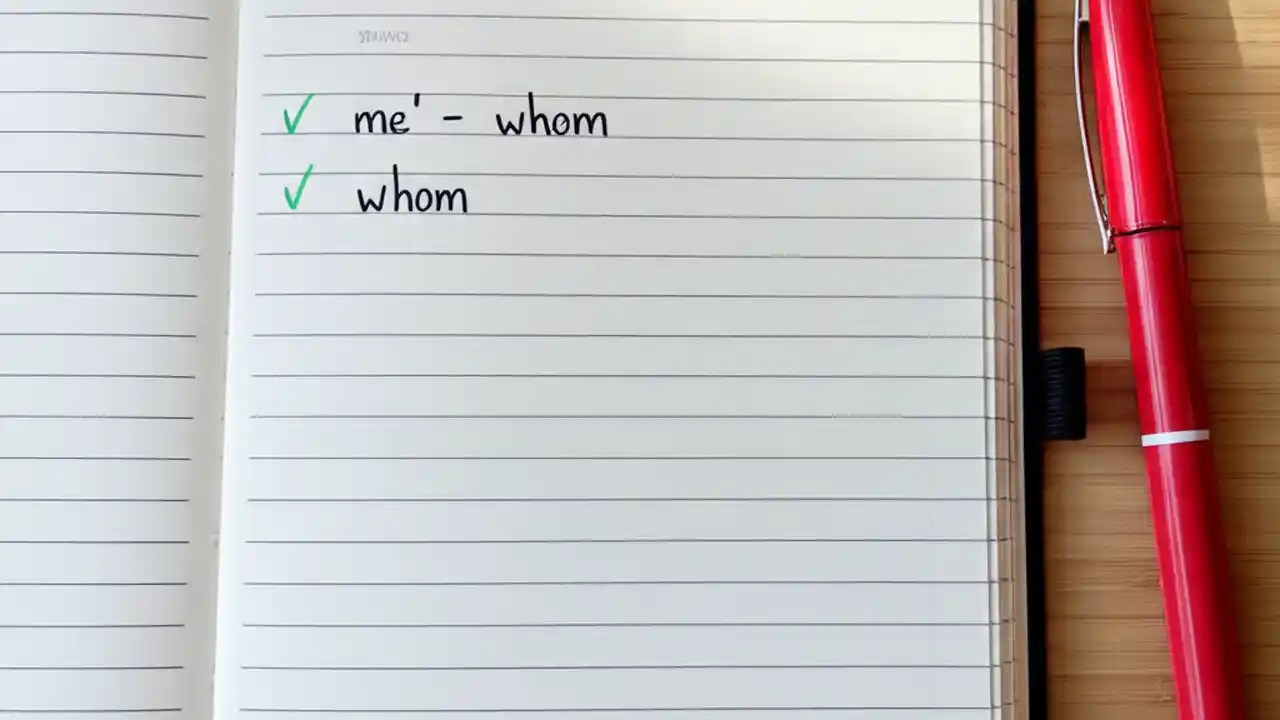 ✓ me' - whom
✓ whom